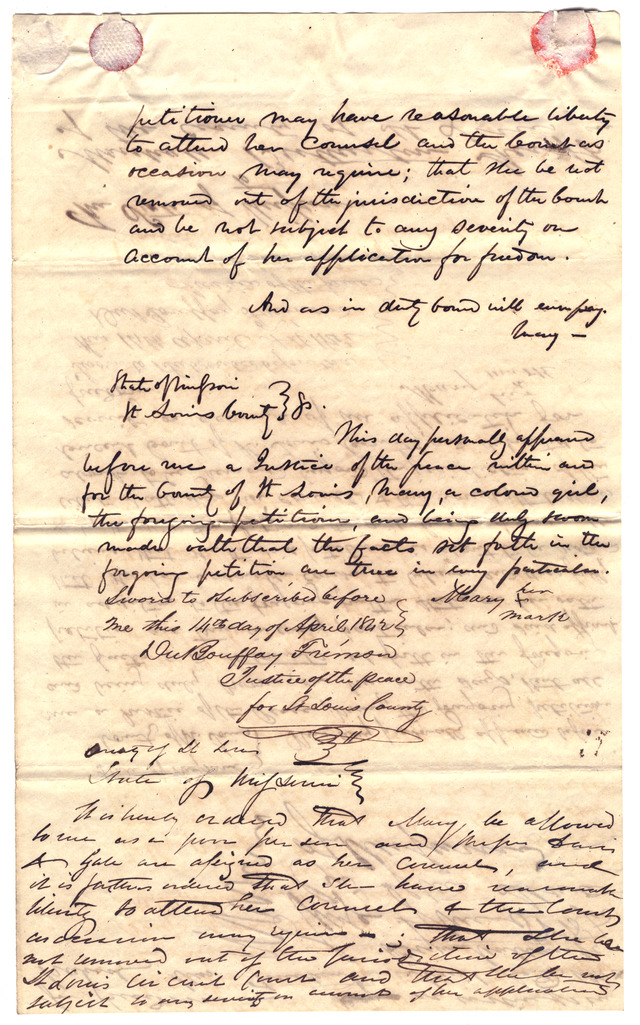 petitioner may have reasonable liberty
to attend her Counsel and the Court as
occasion may require; that she be not
removed out of the jurisdiction of the Court
and be not subject to any severity on
account of her application for freedom.
And as in duty bound will ever pay.
Mary —
State of Missouri
St Louis County } ss.
This day personally appeared
before me a Justice of the peace within and
for the County of St Louis, Mary, a colored girl,
the forgoing petitioner, and being duly sworn
made oath that the facts set forth in the
forgoing petition are true in every particular.
Sworn to & subscribed before { Mary her
me this 14th day of April 1842 x mark
DuBouffay Frémon
Justice of the peace
for St Louis County
County of St Louis
State of Missouri
It is hereby ordered that Mary be allowed
to sue as a poor person and Messrs Davis
& Gale are assigned as her Counsel, and
it is further ordered that she have reasonable
liberty to attend her Counsel & the Court
as occasion may require — ; that she be
not removed out of the jurisdiction of the
St Louis Circuit Court and that she be not
subject to any severity on account of her application